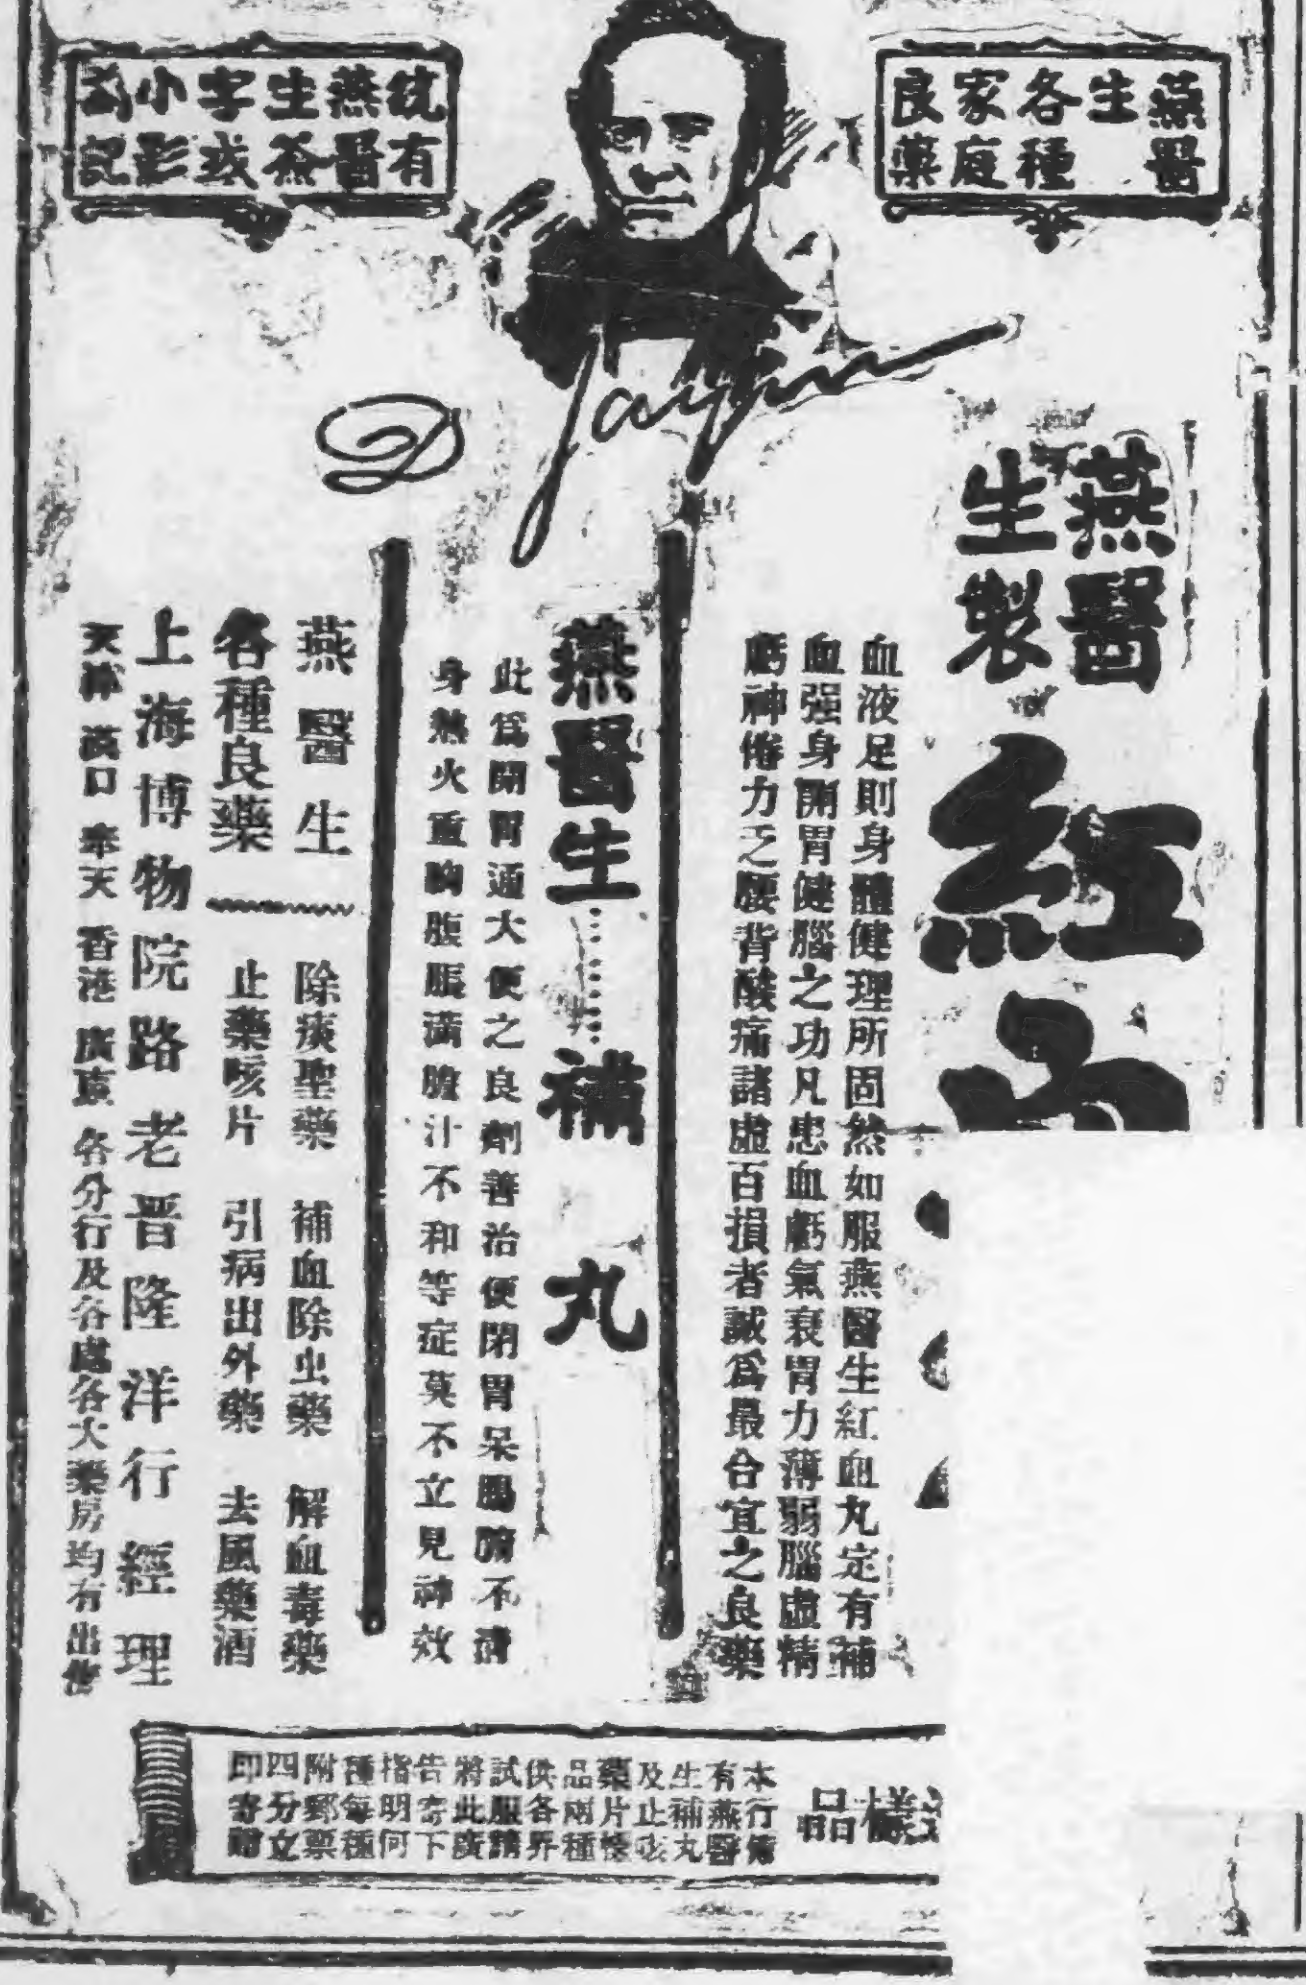 燕醫
生
各種
家庭
良藥
有
燕醫
生簽
字或
小影
爲記
D Jayne
燕醫
生製
紅血
血液足則身體健理所固然如服燕醫生紅血丸定有補
血强身開胃健腦之功凡患血虧氣衰胃力薄弱腦虛精
虧神倦力乏腰背酸痛諸虛百損者誠爲最合宜之良藥
燕醫生……補丸
此爲開胃通大便之良劑善治便閉胃呆腸臟不清
身熱火重胸腹脹滿膽汁不和等症莫不立見神效
燕醫生
各種良藥
除痰聖藥 補血除虫藥 解血毒藥
止藥咳片 引病出外藥 去風藥酒
上海博物院路老晋隆洋行經理
天津 漢口 奉天 香港 廣東 各分行及各處各大藥房均有出售
送樣品
本行備
有燕醫
生補丸
及止咳
藥片
品兩種
供各界
試服請
將此廣
告寄下
指明何
種每種
附郵票
四分立
即寄贈